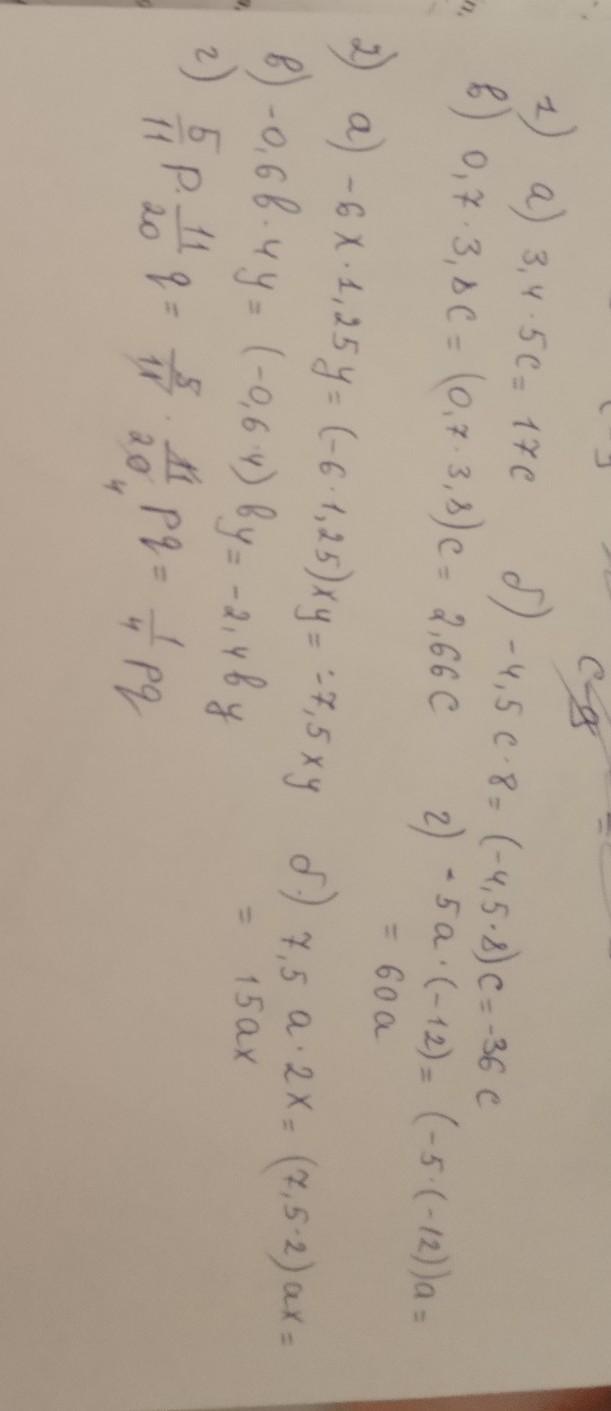 1) а) 3,4·5c = 17c   б) -4,5c·8 = (-4,5·8)c = -36c
в) 0,7·3,8c = (0,7·3,8)c = 2,66c   г) -5a·(-12) = (-5·(-12))a =
= 60a
2) а) -6x·1,25y = (-6·1,25)xy = -7,5xy   б) 7,5a·2x = (7,5·2)ax =
= 15ax
в) -0,6b·4y = (-0,6·4)by = -2,4by
г) 5/11 p · 11/20 q = 5/11 · 11/20 pq = 1/4 pq